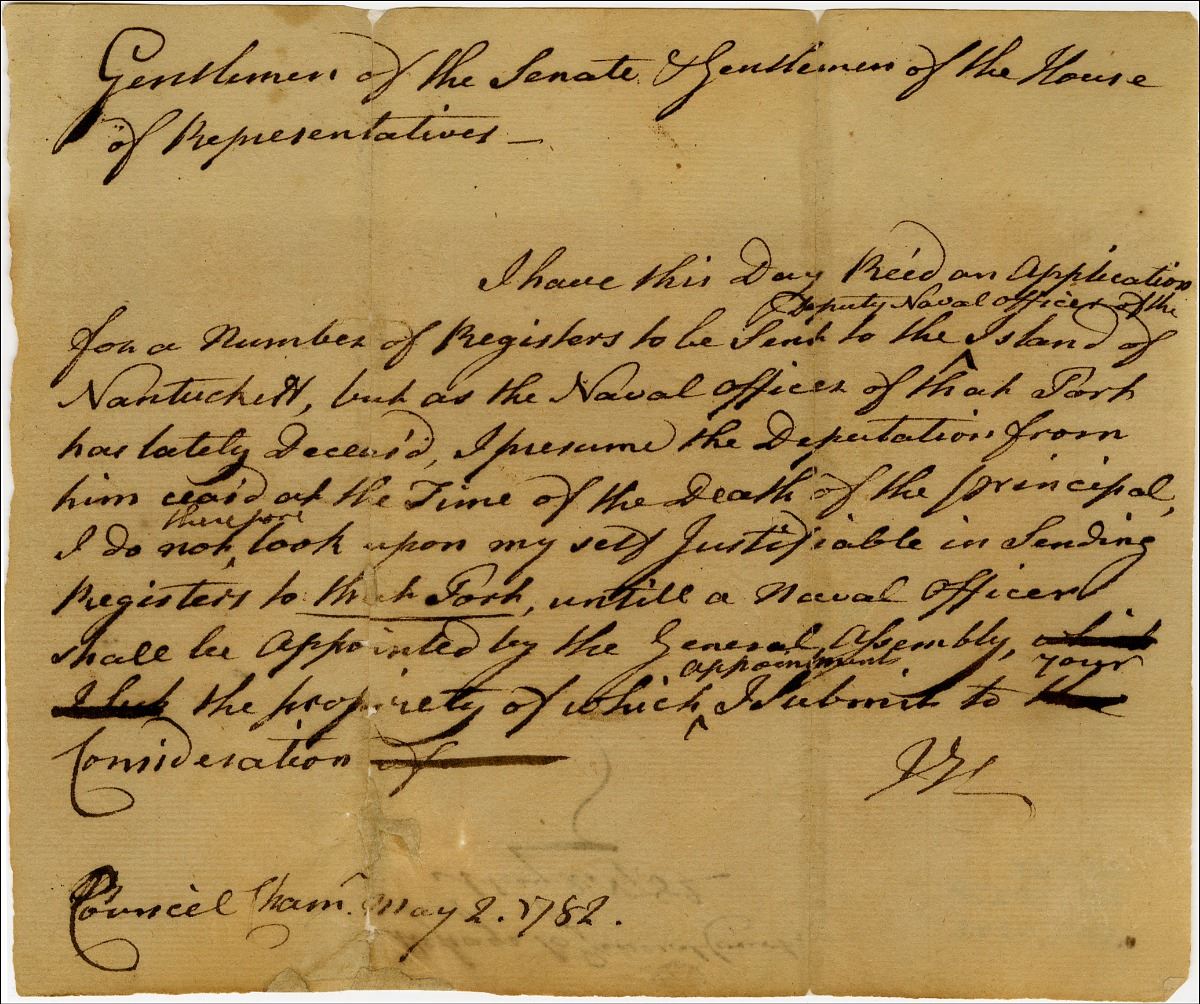 Gentlemen of the Senate & Gentlemen of the House
of Representatives —
I have this Day Rec'd an Application
Deputy Naval Officer of the
for a Number of Registers to be Sent to the ^ Island of
Nantuckett, but as the Naval Officer of that Port
has lately Deceas'd, I presume the Deputation from
him ceas'd at the Time of the Death of the principal,
therefore
I do not ^ look upon my self Justifiable in Sending
Registers to that Port, untill a Naval Officer
shall be Appointed by the General Assembly, which
appointment your
I sub the propriety of which ^ I Submit to the
Consideration of
JH
Council Cham.r May 2. 1782.